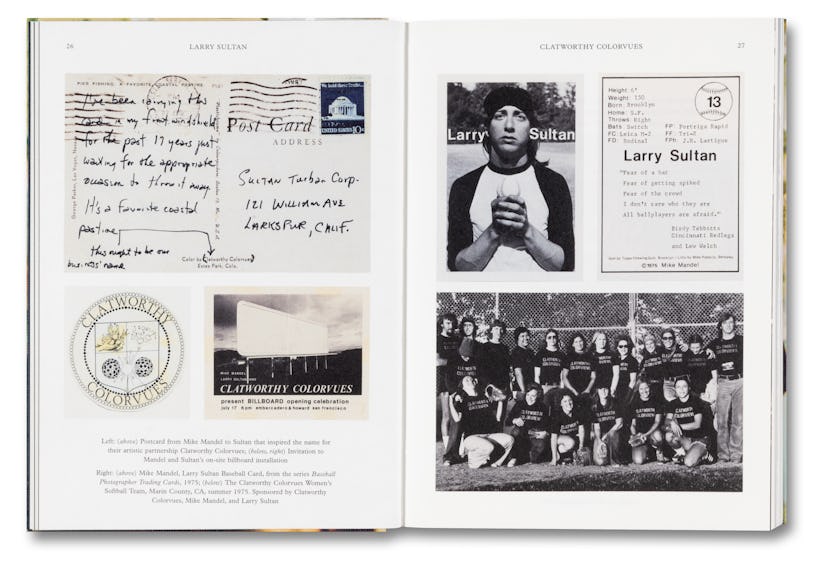 26
LARRY SULTAN
PIER FISHING, A FAVORITE COASTAL PASTIME
I've been carrying this
card in my front windshield
for the past 17 years just
waiting for the appropriate
occasion to throw it away.
It's a favorite coastal
pastime
this ought to be our
business' name
Color by Clatworthy Colorvues
Estes Park, Colo.
Post Card
ADDRESS
UNITED STATES 10c
SULTAN Turban Corp.
121 WILLIAM AVE
LARKSPUR, CALIF.
CLATWORTHY
COLORVUES
MIKE MANDEL
LARRY SULTAN
CLATWORTHY COLORVUES
present BILLBOARD opening celebration
july 17 8 pm embarcadero & howard san francisco
Left: (above) Postcard from Mike Mandel to Sultan that inspired the name for
their artistic partnership Clatworthy Colorvues; (below, right) Invitation to
Mandel and Sultan's on-site billboard installation
Right: (above) Mike Mandel, Larry Sultan Baseball Card, from the series Baseball
Photographer Trading Cards, 1975; (below) The Clatworthy Colorvues Women's
Softball Team, Marin County, CA, summer 1975. Sponsored by Clatworthy
Colorvues, Mike Mandel, and Larry Sultan
CLATWORTHY COLORVUES
27
Larry Sultan
Height: 6"
Weight: 150
Born: Brooklyn
Home: S.F.
Throws: Right
Bats Switch FP: Portriga Rapid
FC: Leica M-2 FF: Tri-X
FD: Rodinal FPh: J.H. Lartigue
13
Larry Sultan
"Fear of a bat
Fear of getting spiked
Fear of the crowd
I don't care who they are
All ballplayers are afraid."
Birdy Tebbitts
Cincinnati Redlegs
and Lew Welch
©1975 Mike Mandel